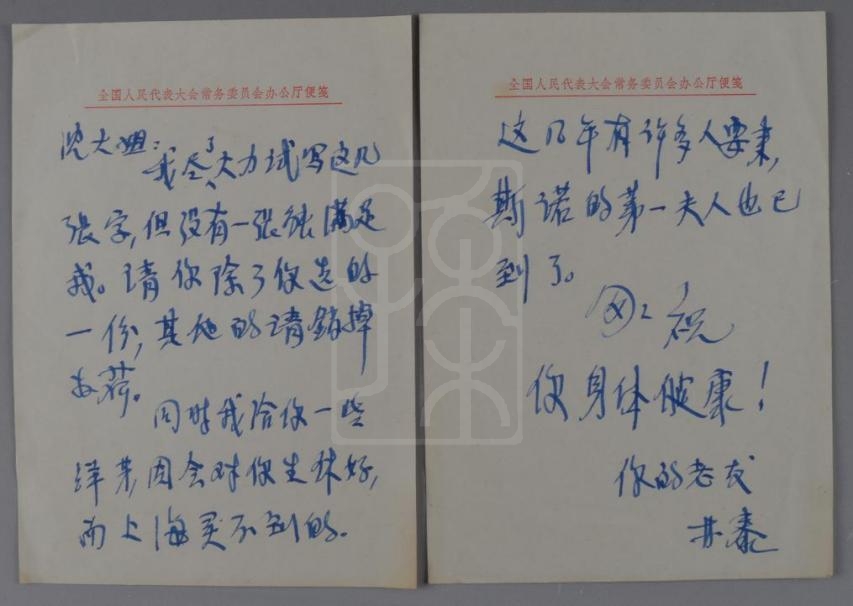 全国人民代表大会常务委员会办公厅便笺
沈大姐:
我尽了大力试写这几
张字,但没有一张能满足
我。请你除了你选的
一份,其他的请销掉
为荷。
同时我给你一些
洋芋,因会对你生体好,
而上海买不到的。
全国人民代表大会常务委员会办公厅便笺
这几年有许多人要来,
斯诺的第一夫人也已
到了。
祝
你身体健康!
你的老友